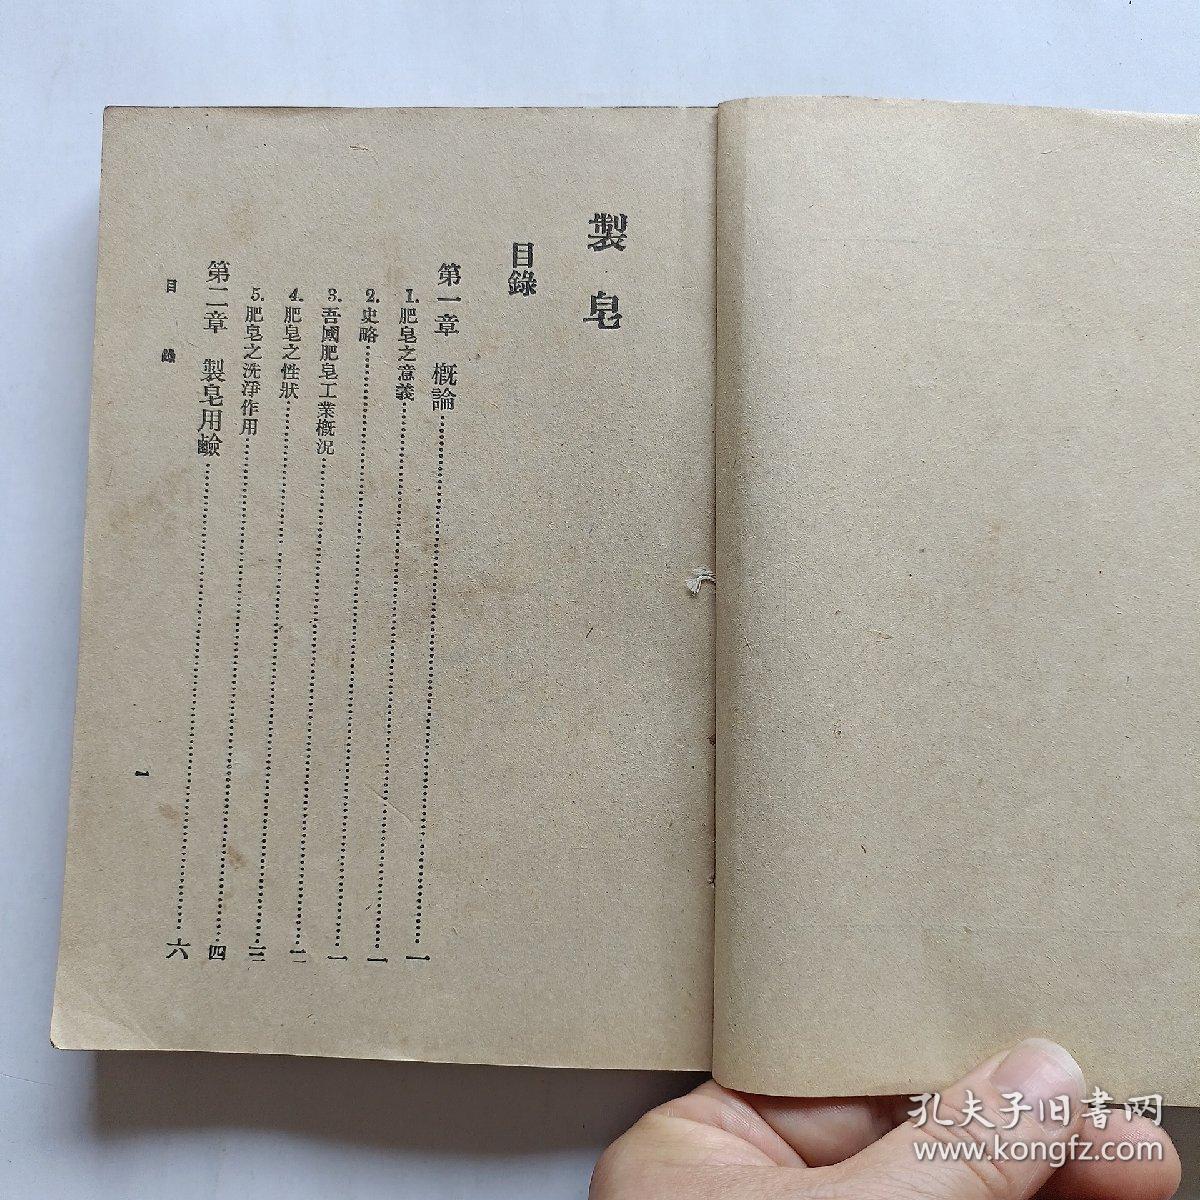 製皂
目錄
第一章 槪論……一
1. 肥皂之意義……一
2. 史略……一
3. 吾國肥皂工業槪況……二
4. 肥皂之性狀……三
5. 肥皂之洗淨作用……四
第二章 製皂用鹼……六
目錄
一
孔夫子旧書网
www.kongfz.com